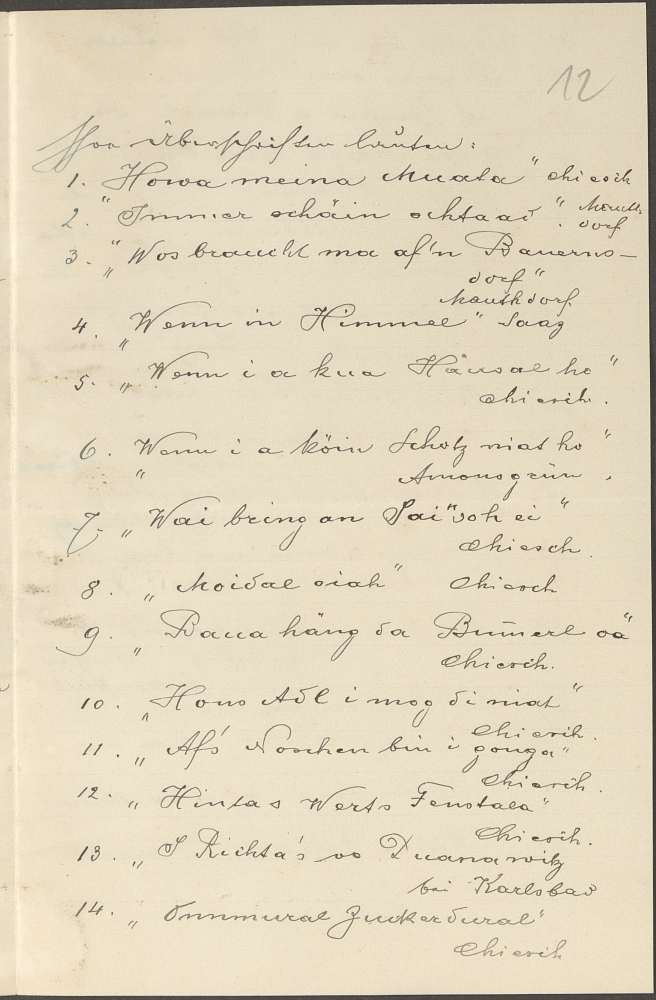 12
Überschriften lauten:
1. Howa meina Muata" Chiesch
2. "Immer schäin schtaad". Mauth-
dorf
3. "Wos braucht ma af'n Bauerns-
dorf"
Mauthdorf.
4. "Wenn in Himmel" Saaz
5. "Wenn i a kua Häusal ho"
Chiesch.
6. "Wenn i a köin Schotz niat ho"
Amonsgrün.
7. "Wai bring an Sai" voh ei"
Chiesch.
8. "Moidal siah" Chiesch
9. "Baua häng da Bümerl oa"
Chiesch.
10. "Hons Adl i mog di niat"
Chiesch.
11. "Af's Noschen bin i gonga"
Chiesch.
12. "Hintas Werts Fenstala"
Chiesch.
13. "S Richta's vo Duanawitz
bei Karlsbad
14. "Annmural Zuckerdural"
Chiesch